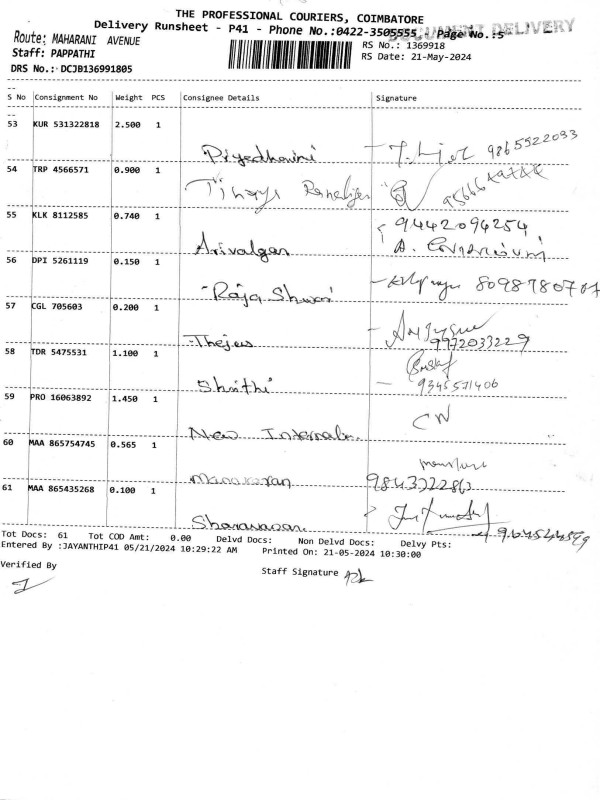 THE PROFESSIONAL COURIERS, COIMBATORE
Delivery Runsheet - P41 - Phone No.:0422-3505555, Page No.:5
DOCUMENT DELIVERY
Route: MAHARANI AVENUE
RS No.: 1369918
Staff: PAPPATHI
RS Date: 21-May-2024
DRS No.: DCJB136991805
S No Consignment No Weight PCS Consignee Details Signature
53 KUR 531322818 2.500 1
Priyadharsini 9865522033
54 TRP 4566571 0.900 1
55 KLK 8112585 0.740 1
9442094254
Arivalgan
56 DPI 5261119 0.150 1
Raja Shwari
57 CGL 705603 0.200 1
Thejas 9972033229
58 TDR 5475531 1.100 1
Shrithi 9345571406
59 PRO 16063892 1.450 1
CN
New
60 MAA 865754745 0.565 1
Manoharan 9843222863
61 MAA 865435268 0.100 1
Sharavanan
Tot Docs: 61 Tot COD Amt: 0.00 Delvd Docs: Non Delvd Docs: Delvy Pts:
Entered By :JAYANTHIP41 05/21/2024 10:29:22 AM Printed On: 21-05-2024 10:30:00
Verified By
Staff Signature